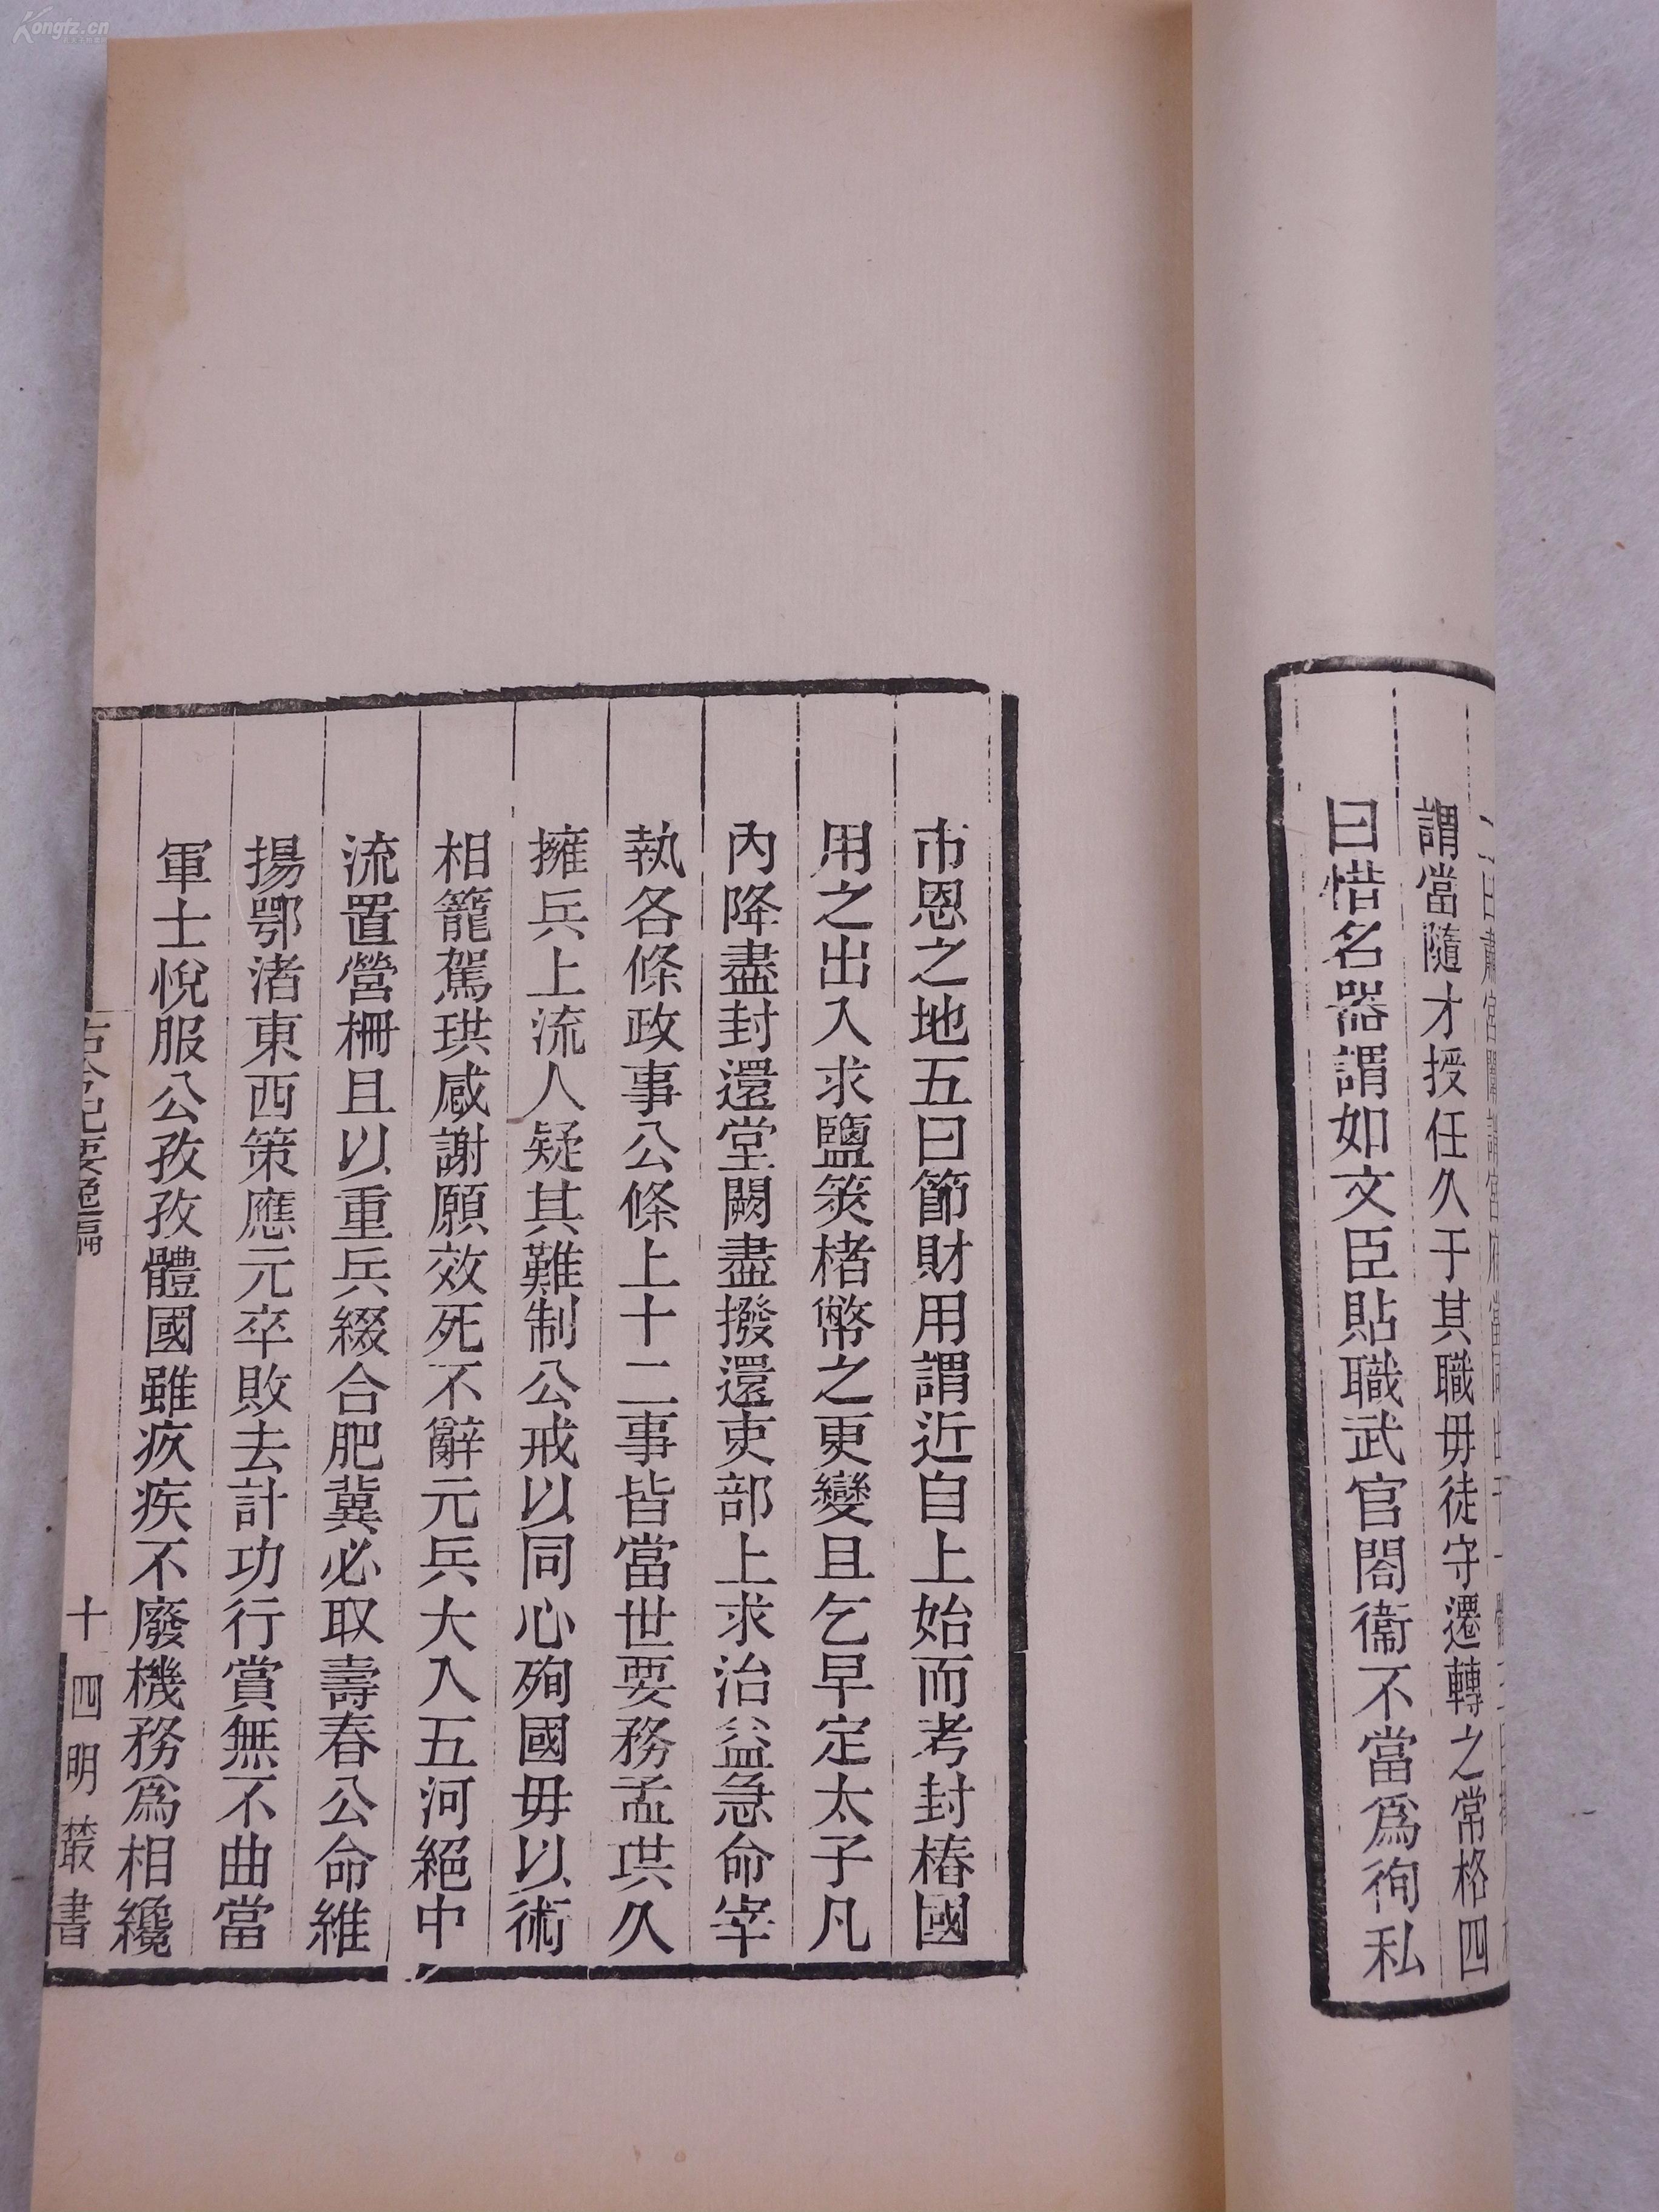 Kongfz.cn
曰肅宮闈謂宮府當
謂當隨才授任久于其職毋徒守遷轉之常格四
曰惜名器謂如文臣貼職武官閤衞不當爲徇私
市恩之地五曰節財用謂近自上始而考封樁國
用之出入求鹽筴楮幣之更變且乞早定太子凡
內降盡封還堂闕盡撥還吏部上求治益急命宰
執各條政事公條上十二事皆當世要務孟珙久
擁兵上流人疑其難制公戒以同心殉國毋以術
相籠駕珙感謝願效死不辭元兵大入五河絕中
流置營柵且以重兵綴合肥冀必取壽春公命維
揚鄂渚東西策應元卒敗去計功行賞無不曲當
軍士悅服公孜孜體國雖疚疾不廢機務爲相纔
十 四明叢書